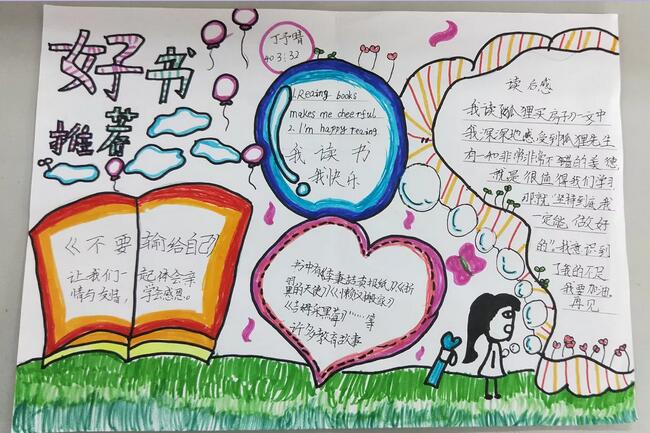 好书
推荐
丁予晴
403:32
1.Reading books
makes me cheerful
2. I'm happy reaing
我读书
我快乐
读后感
我读《狐狸买房子》一文中
我深深地感受到狐狸先生
有一种非常非常不错的美德
就是很值得我们学习
那就“坚持到底我
一定能做好
的”。我意识到
了我的不足
我要加油。
再见
《不要输给自己》
让我们一起体会亲
情与友谊，学会感恩。
书中有
翼的天使》
许多教育故事